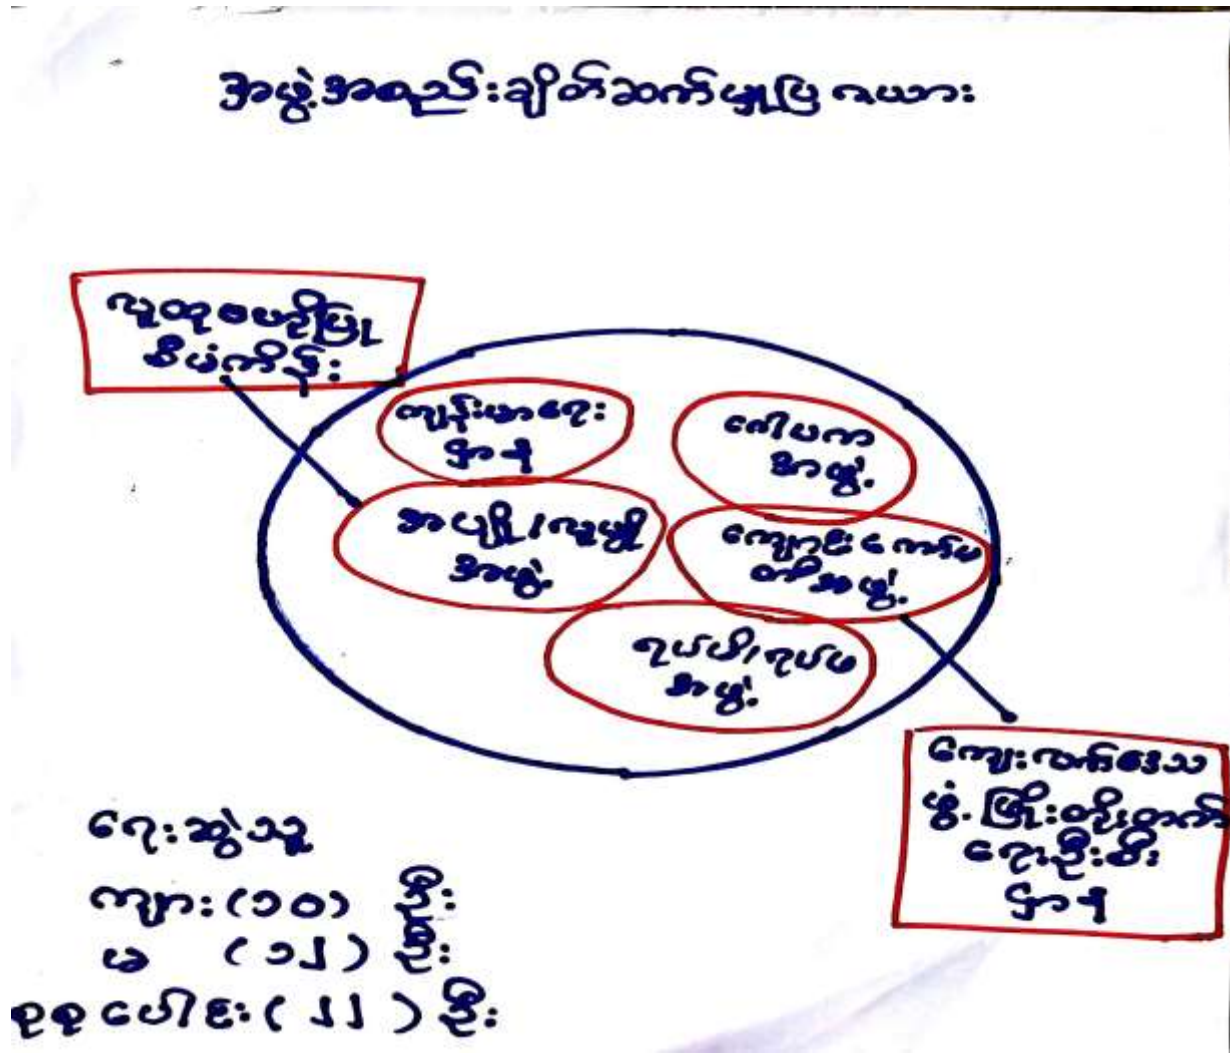 အဖွဲ့အစည်းချိတ်ဆက်မှုပြ ဇယား
လူထုဗဟိုပြု
စီမံကိန်း
ကျန်းမာရေး
ဌာန
ဂေါပက
အဖွဲ့
အပျို/လူပျို
အဖွဲ့
ကျောင်းကော်မ
တီအဖွဲ့
ရပ်မိ/ရပ်ဖ
အဖွဲ့
ကျေးလက်ဒေသ
ဖွံ့ဖြိုးတိုးတက်
ရေးဦးစီး
ဌာန
ရေးဆွဲသူ
ကျား (၁၀) ဦး
မ (၁၂) ဦး
စုစုပေါင်း (၂၂) ဦး